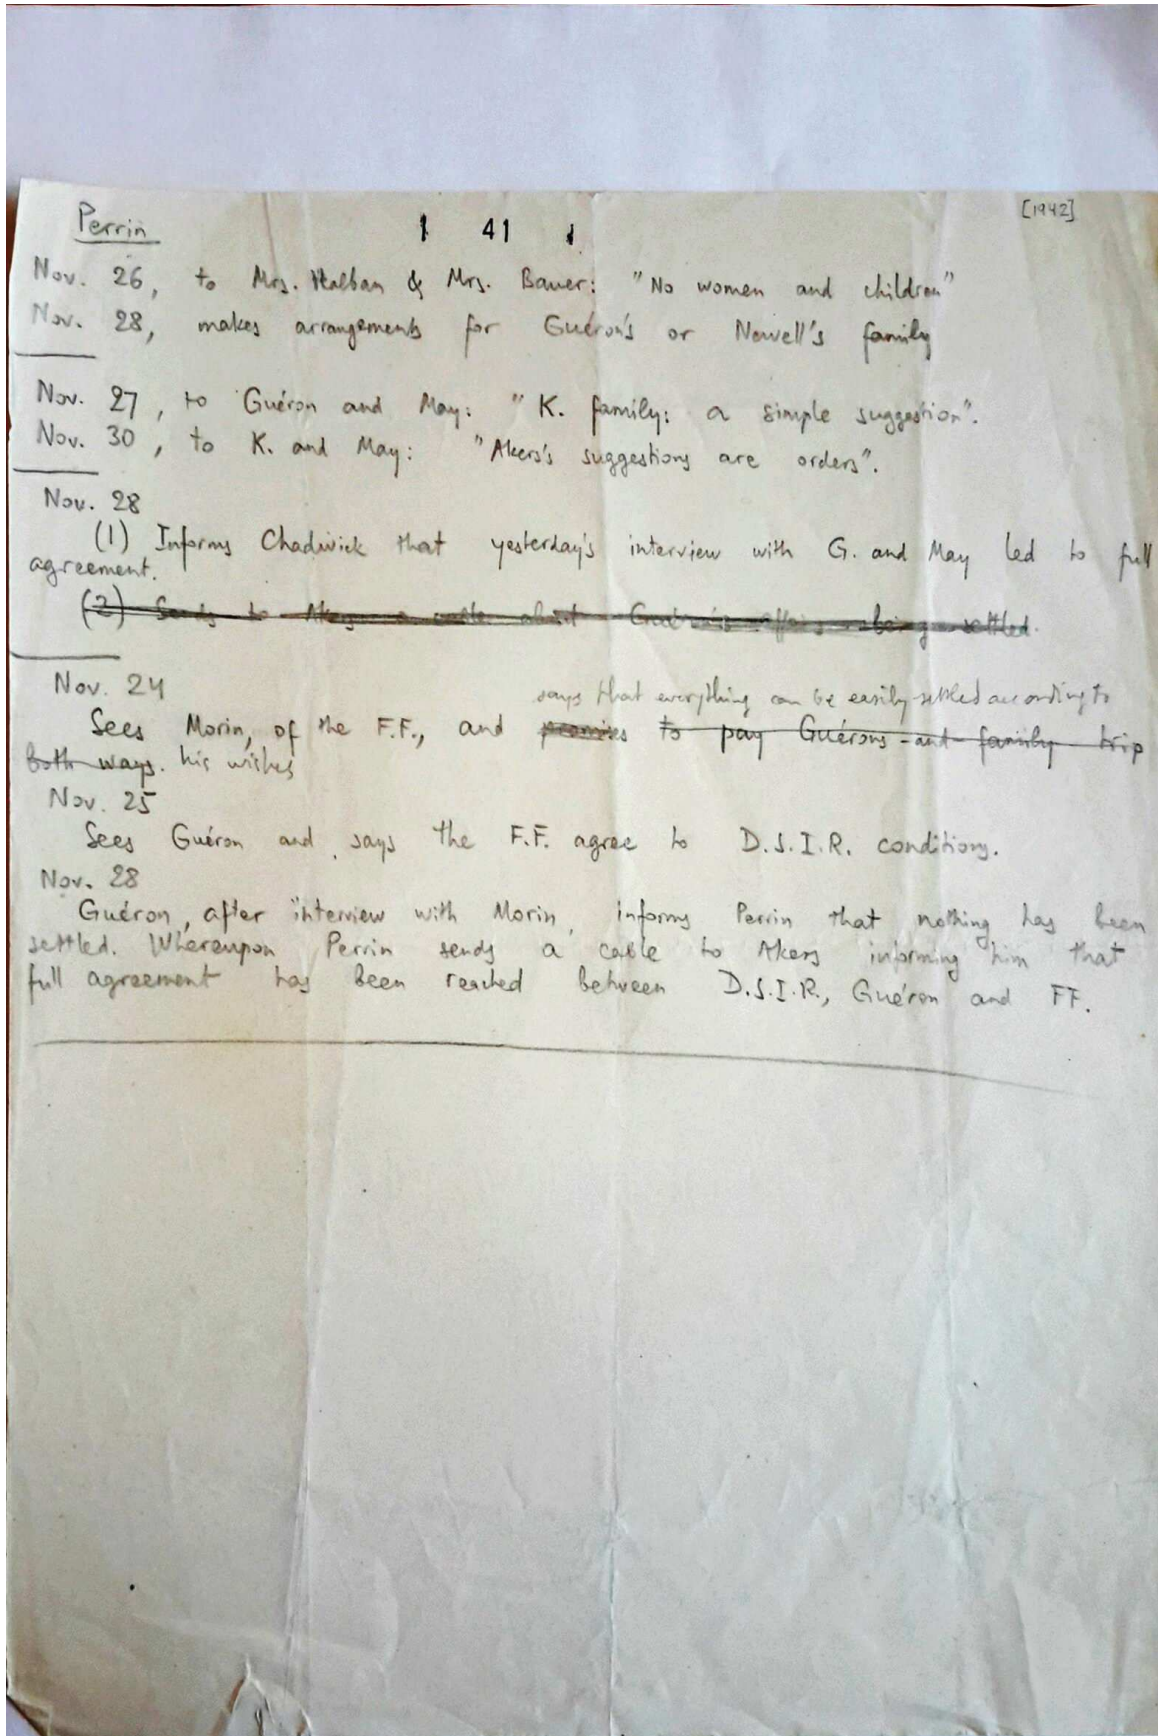 Perrin
1 41 1
[1942]
Nov. 26, to Mrs. Halban & Mrs. Bauer: "No women and children"
Nov. 28, makes arrangements for Guéron's or Nowell's family
Nov. 27, to Guéron and May: "K. family: a simple suggestion".
Nov. 30, to K. and May: "Akers's suggestions are orders".
Nov. 28
(1) Informs Chadwick that yesterday's interview with G. and May led to full
agreement.
(2) Sends to Akers a cable about Guéron's affairs being settled.
Nov. 24
says that everything can be easily settled according to
Sees Morin, of the F.F., and promises to pay Guérons and family trip
both ways. his wishes
Nov. 25
Sees Guéron and says the F.F. agree to D.S.I.R. conditions.
Nov. 28
Guéron, after interview with Morin, informs Perrin that nothing has been
settled. Whereupon Perrin sends a cable to Akers informing him that
full agreement has been reached between D.S.I.R., Guéron and FF.